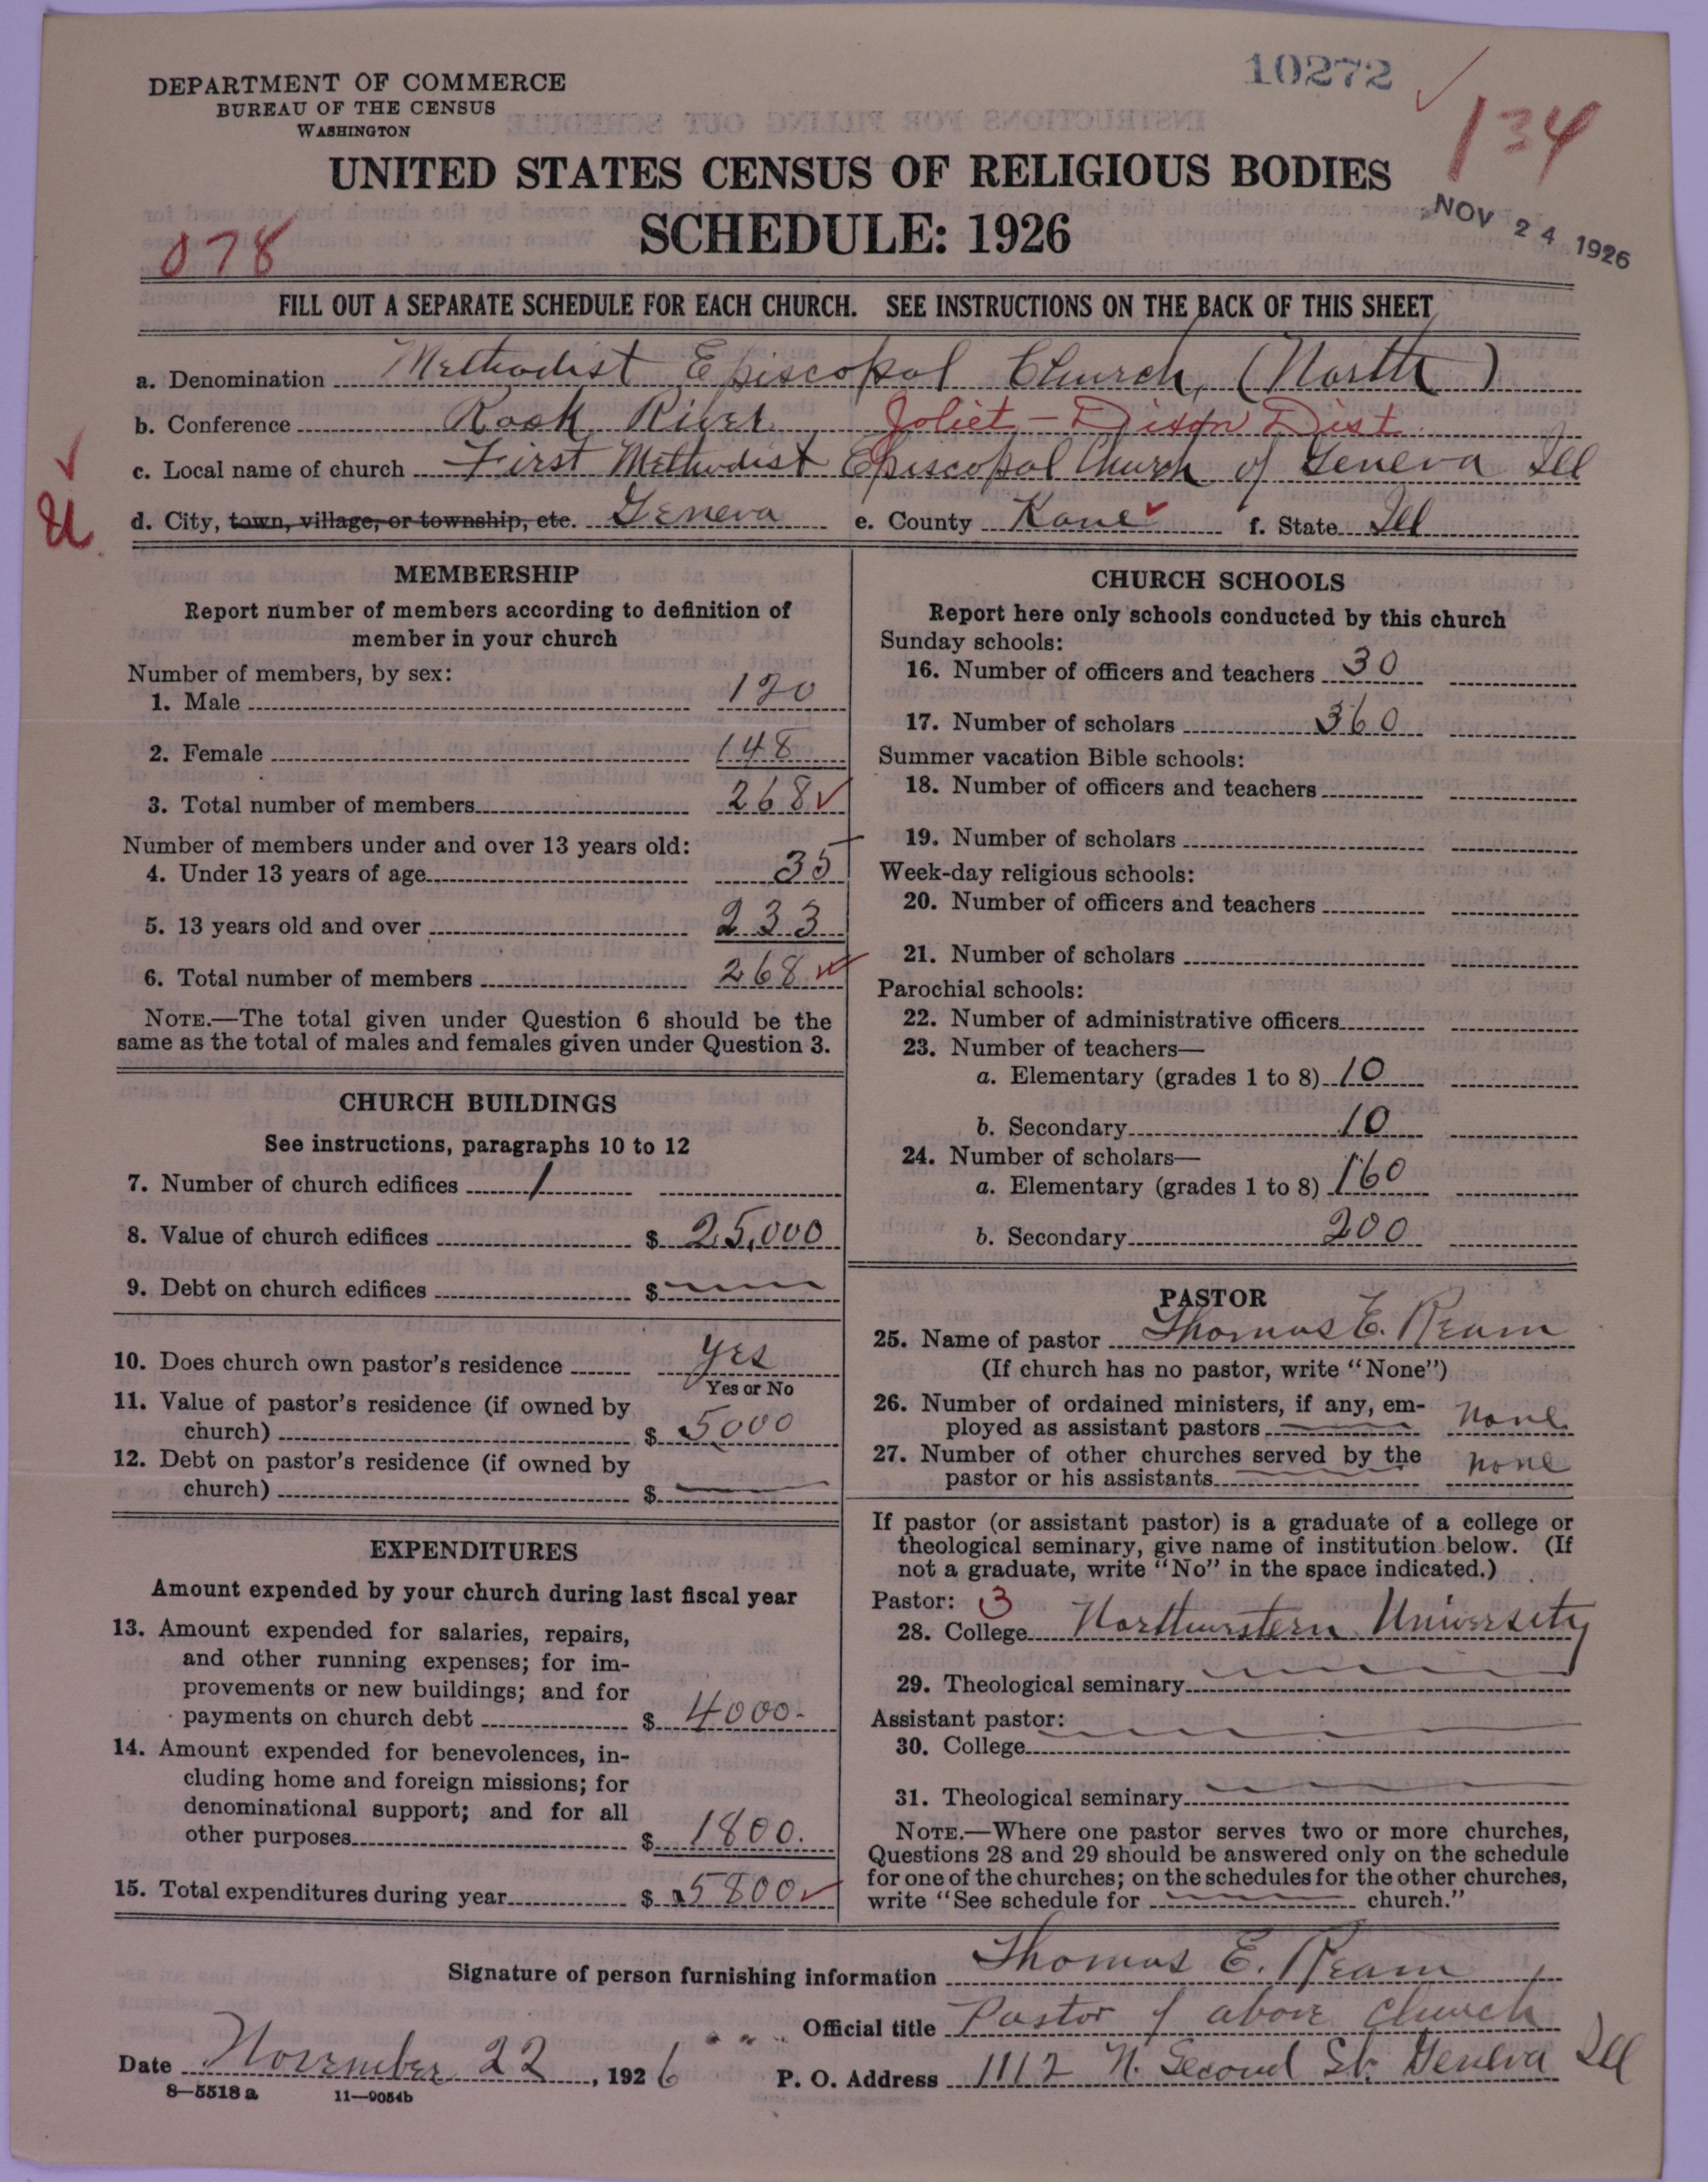 10272
134
DEPARTMENT OF COMMERCE
BUREAU OF THE CENSUS
WASHINGTON
UNITED STATES CENSUS OF RELIGIOUS BODIES
SCHEDULE: 1926
NOV 24 1926
078
FILL OUT A SEPARATE SCHEDULE FOR EACH CHURCH. SEE INSTRUCTIONS ON THE BACK OF THIS SHEET
a. Denomination Methodist Episcopal Church, (North)
b. Conference Rock River Joliet - Dixon Dist.
c. Local name of church First Methodist Episcopal Church of Geneva Ill
d. City, town, village, or township, etc. Geneva e. County Kane f. State Ill
MEMBERSHIP
Report number of members according to definition of
member in your church
Number of members, by sex:
1. Male 120
2. Female 148
3. Total number of members 268
Number of members under and over 13 years old:
4. Under 13 years of age 35
5. 13 years old and over 233
6. Total number of members 268
NOTE.—The total given under Question 6 should be the
same as the total of males and females given under Question 3.
CHURCH BUILDINGS
See instructions, paragraphs 10 to 12
7. Number of church edifices 1
8. Value of church edifices $ 25,000
9. Debt on church edifices $
10. Does church own pastor's residence Yes
Yes or No
11. Value of pastor's residence (if owned by
church) $ 5000
12. Debt on pastor's residence (if owned by
church) $
EXPENDITURES
Amount expended by your church during last fiscal year
13. Amount expended for salaries, repairs,
and other running expenses; for im-
provements or new buildings; and for
payments on church debt $ 4000.
14. Amount expended for benevolences, in-
cluding home and foreign missions; for
denominational support; and for all
other purposes $ 1800.
15. Total expenditures during year $ 5800
CHURCH SCHOOLS
Report here only schools conducted by this church
Sunday schools:
16. Number of officers and teachers 30
17. Number of scholars 360
Summer vacation Bible schools:
18. Number of officers and teachers
19. Number of scholars
Week-day religious schools:
20. Number of officers and teachers
21. Number of scholars
Parochial schools:
22. Number of administrative officers
23. Number of teachers—
a. Elementary (grades 1 to 8) 10
b. Secondary 10
24. Number of scholars—
a. Elementary (grades 1 to 8) 160
b. Secondary 200
PASTOR
25. Name of pastor Thomas E. Ream
(If church has no pastor, write "None")
26. Number of ordained ministers, if any, em-
ployed as assistant pastors none
27. Number of other churches served by the
pastor or his assistants none
If pastor (or assistant pastor) is a graduate of a college or
theological seminary, give name of institution below. (If
not a graduate, write "No" in the space indicated.)
Pastor: 3
28. College Northwestern University
29. Theological seminary
Assistant pastor:
30. College
31. Theological seminary
NOTE.—Where one pastor serves two or more churches,
Questions 28 and 29 should be answered only on the schedule
for one of the churches; on the schedules for the other churches,
write "See schedule for church."
Signature of person furnishing information Thomas E. Ream
Official title Pastor of above church
Date November 22, 1926 P. O. Address 111 2 N. Second St. Geneva Ill
8—5518 a 11—9054b